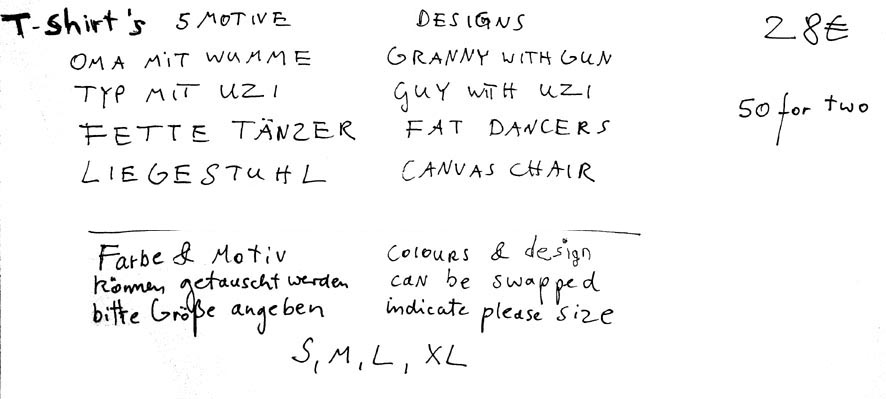 T-Shirt's 5 MOTIVE DESIGNS 28€
OMA MIT WUMME GRANNY WITH GUN
TYP MIT UZI GUY WITH UZI 50 for two
FETTE TÄNZER FAT DANCERS
LIEGESTUHL CANVAS CHAIR
Farbe & Motiv COLOURS & design
können getauscht werden can be swapped
bitte Größe angeben indicate please size
S, M, L, XL